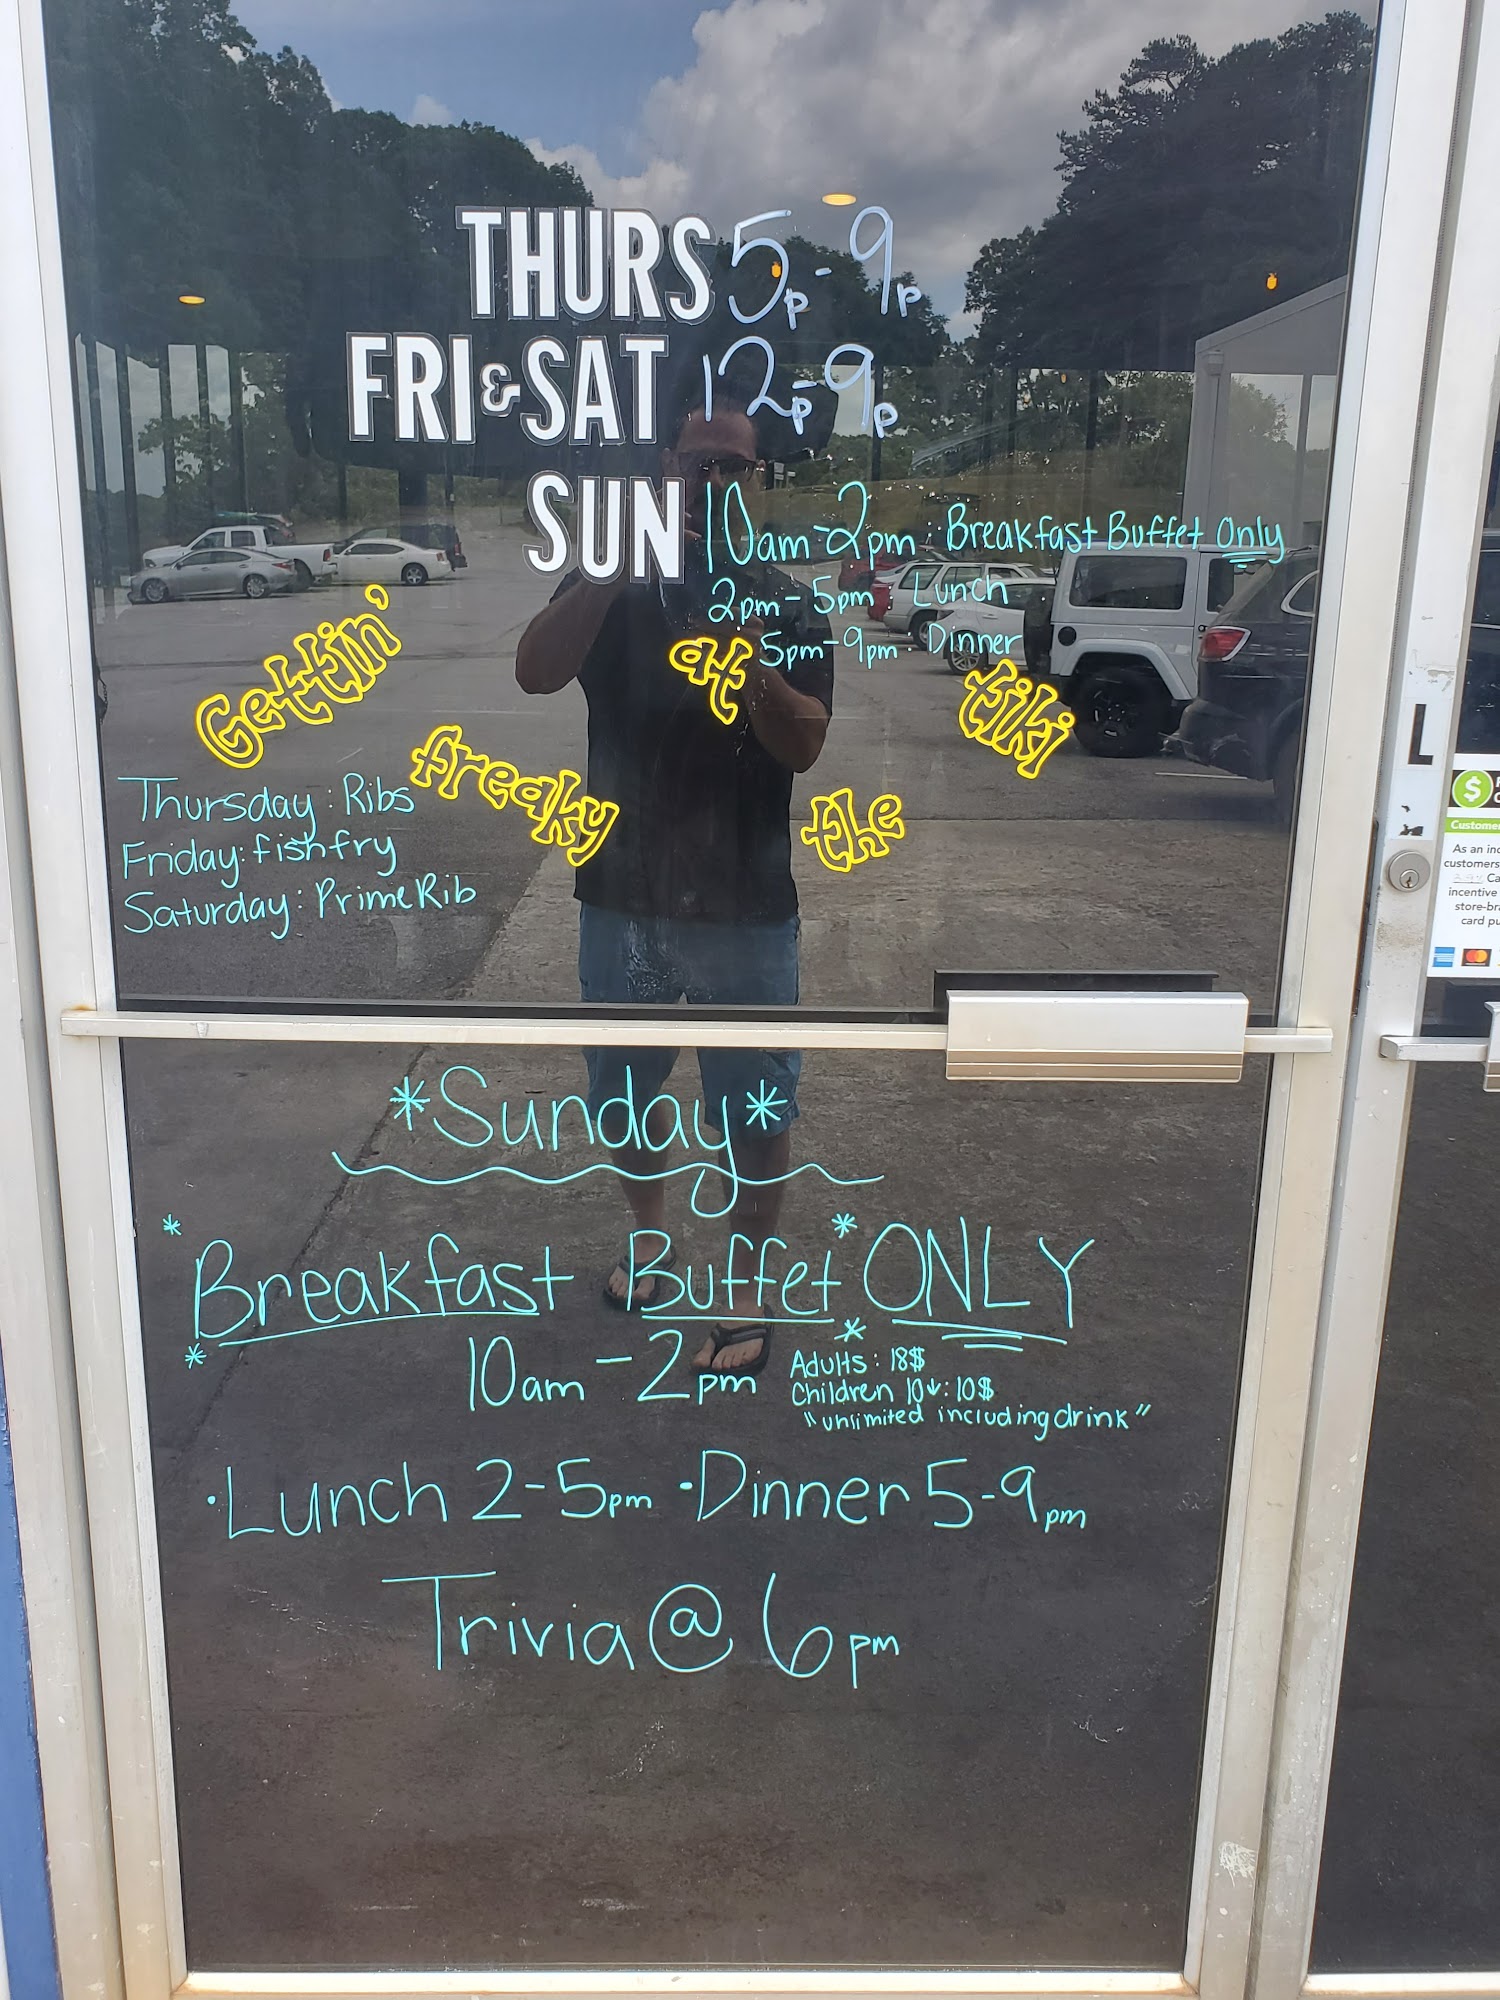 THURS 5p-9p
FRI & SAT 12p-9p
SUN 10am-2pm : Breakfast Buffet Only
2pm-5pm Lunch
5pm-9pm : Dinner
Gettin' freaky at the tiki
Thursday : Ribs
Friday: fish fry
Saturday : Prime Rib
*Sunday*
*Breakfast Buffet* ONLY
10am - 2pm
Adults : 18$
Children 10↓: 10$
"unlimited including drink"
· Lunch 2-5pm · Dinner 5-9pm
Trivia @ 6pm
L
$
Custome
As an inc
customers
Ca
incentive
store-bra
card pu